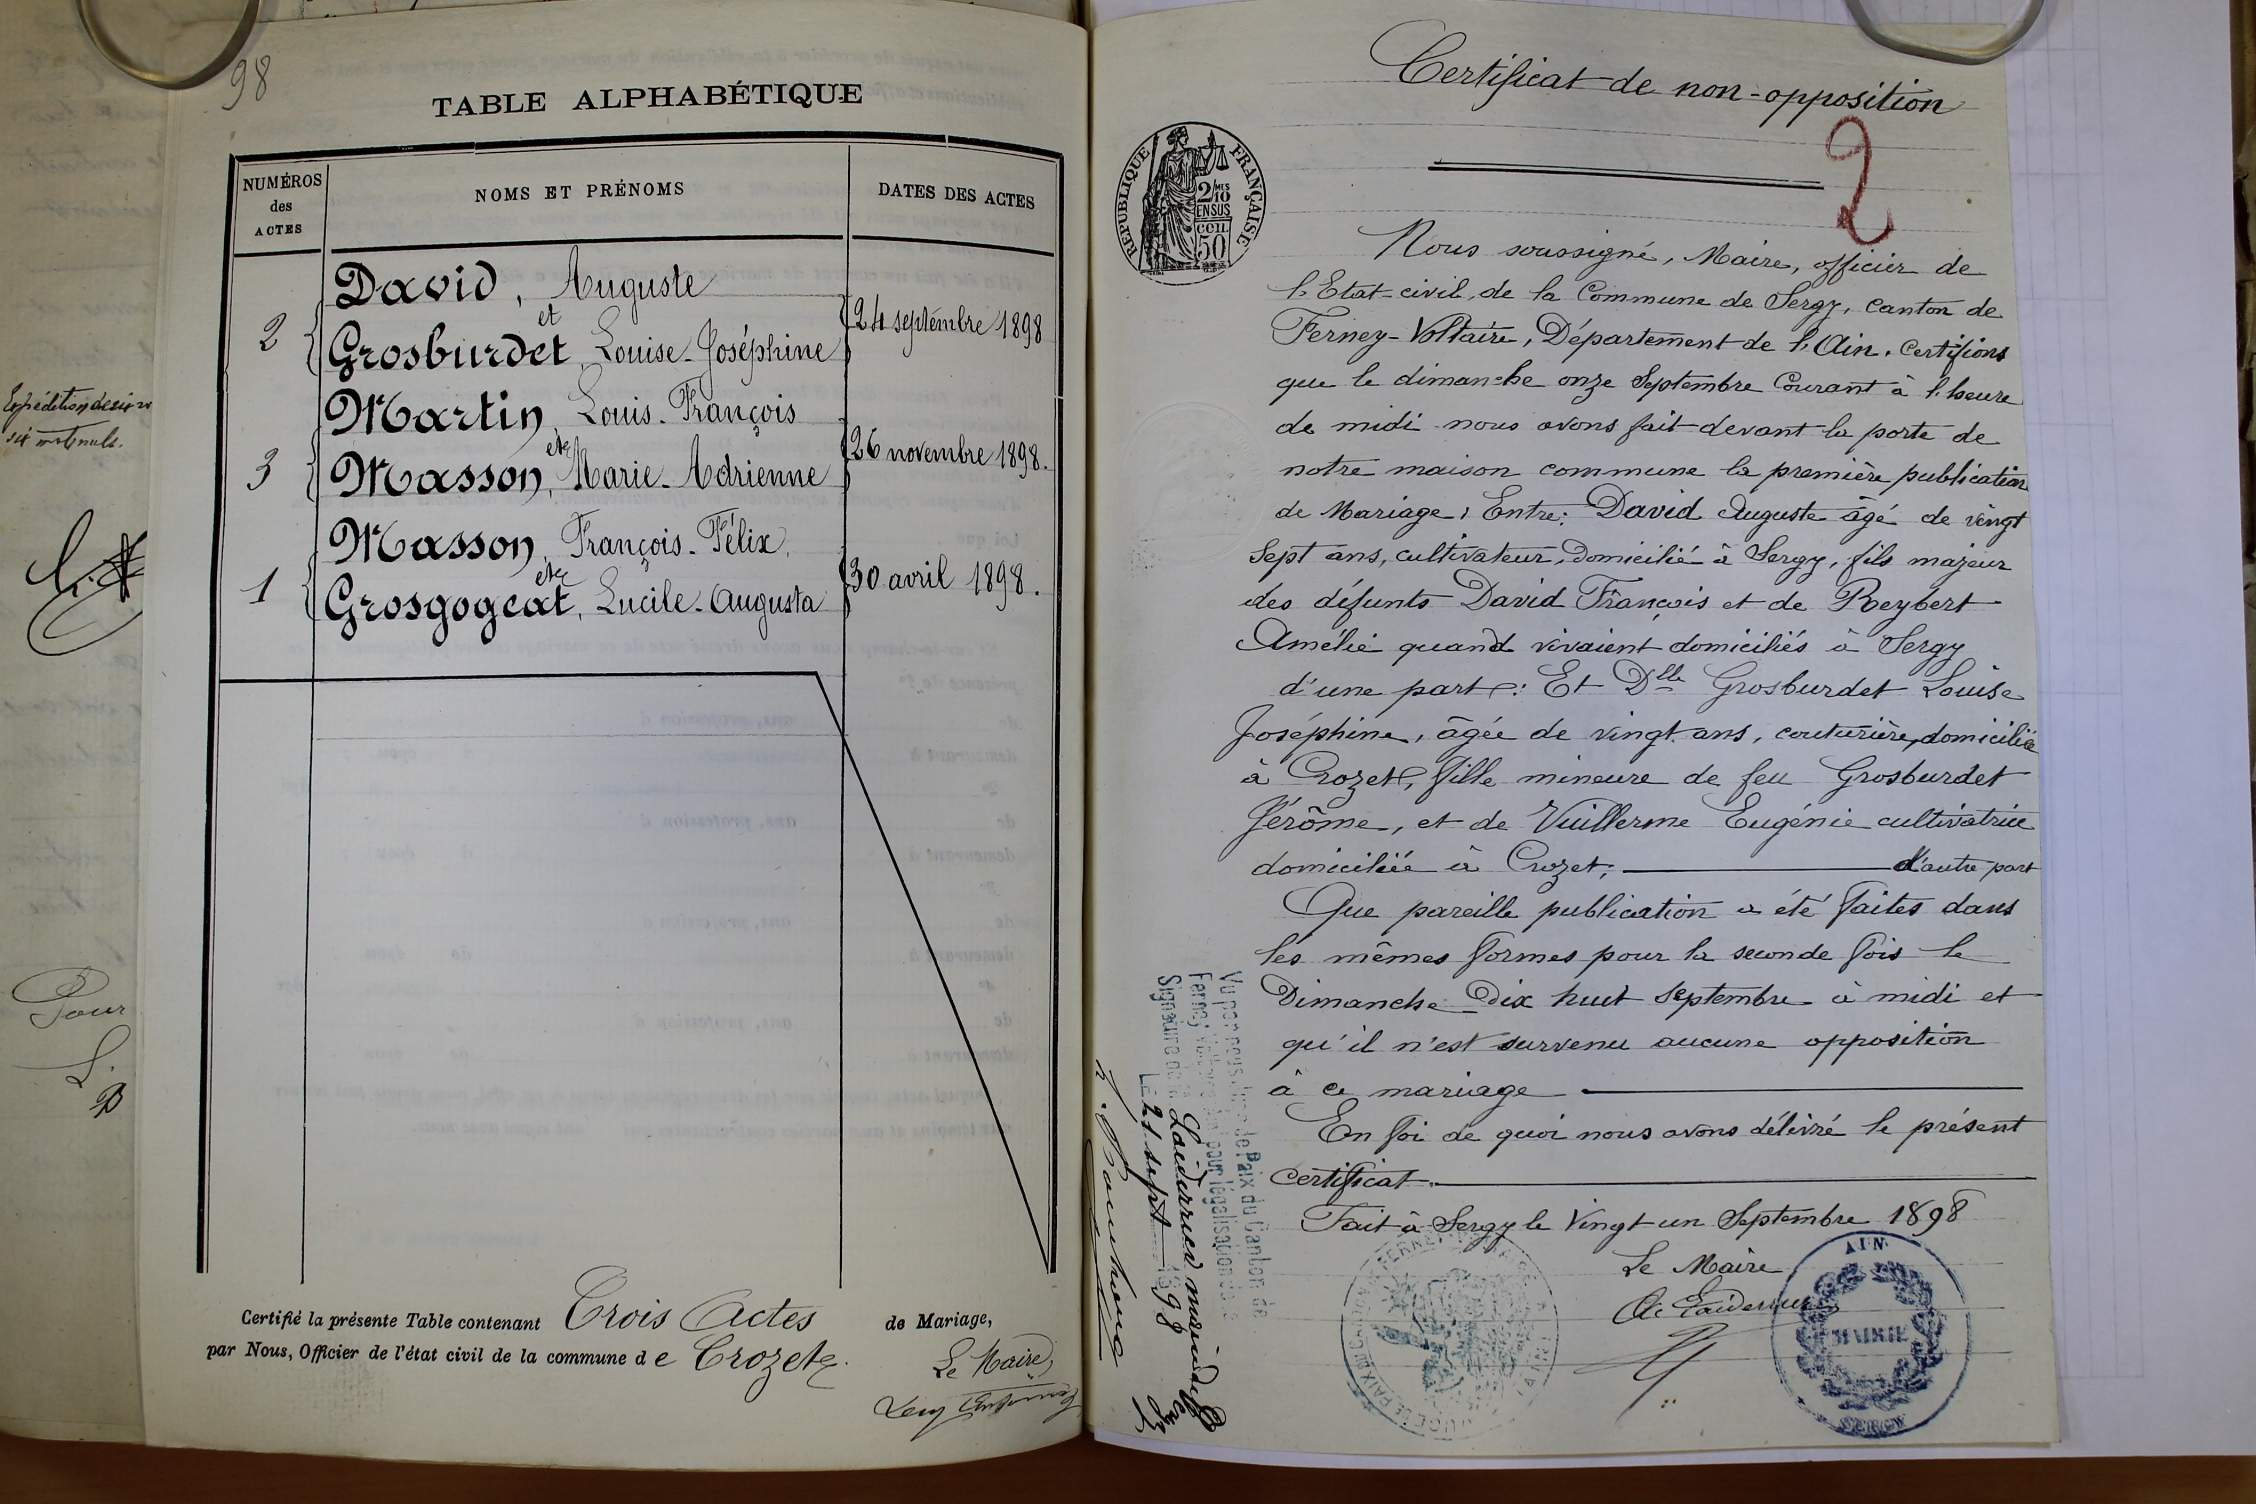 98
TABLE ALPHABÉTIQUE
NUMÉROS
des
ACTES
NOMS ET PRÉNOMS
DATES DES ACTES
David, Auguste
et
2
24 septembre 1898
Grosburdet, Louise-Joséphine
Martin, Louis-François
et
3
26 novembre 1898.
Masson, Marie-Adrienne
Masson, François-Félix,
et
1
30 avril 1898.
Grosgogeat, Lucile-Augusta
Certifié la présente Table contenant Trois Actes de Mariage,
par Nous, Officier de l'état civil de la commune de Crozet.
Le Maire,
Pour
Certificat de non-opposition
2
RÉPUBLIQUE FRANÇAISE
2/10 MES
EN SUS
50
Nous soussigné, Maire, officier de
l'Etat-civil, de la Commune de Sergy, canton de
Ferney-Voltaire, Département de l'Ain, Certifions
que le dimanche onze Septembre Courant à l'heure
de midi nous avons fait devant la porte de
notre maison commune la première publication
de Mariage, Entre: David Auguste âgé de vingt
sept ans, cultivateur, domicilié à Sergy, fils majeur
des défunts David François et de Reybert
Amélie quand vivaient domiciliés à Sergy
d'une part: Et Dlle Grosburdet Louise
Joséphine, âgée de vingt ans, couturière, domiciliée
à Crozet, fille mineure de feu Grosburdet
Jérôme, et de Vuillerme Eugénie cultivatrice
domiciliée à Crozet, d'autre part
Que pareille publication a été faites dans
les mêmes formes pour la seconde fois le
Dimanche Dix huit Septembre à midi et
qu'il n'est survenu aucune opposition
à ce mariage
En foi de quoi nous avons délivré le présent
certificat.
Fait à Sergy le Vingt un Septembre 1898
Le Maire
AIN
MAIRIE
SERGY
Vu par nous, Juge de Paix du Canton de
Ferney-Voltaire pour légalisation
Signature de
Le 21 sept 1898